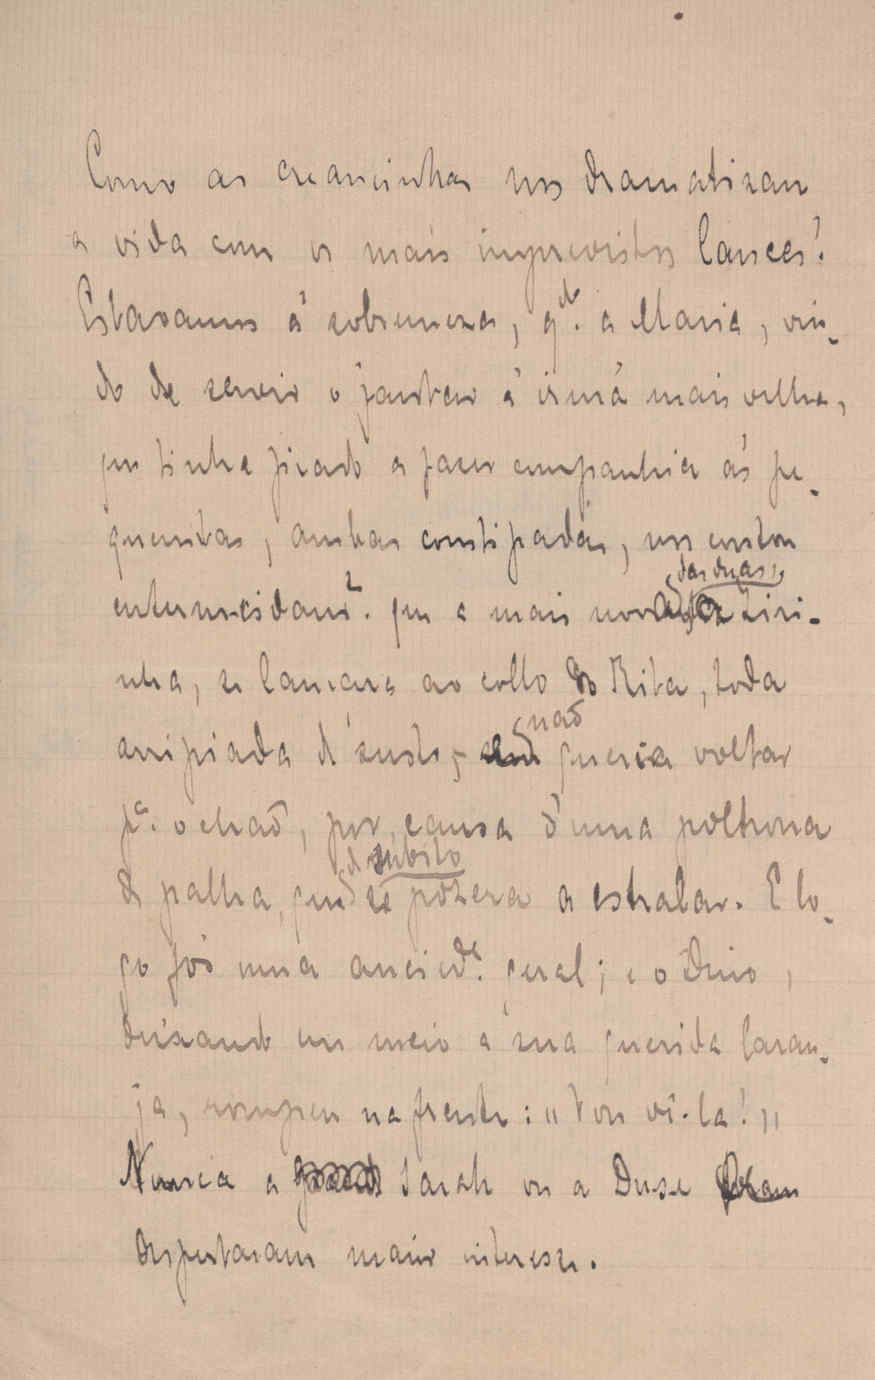 Como as creancinhas nos dramatisam
a vida com os mais imprevistos lances!
Estavamos á sobremeza, q.do a Maria, vin-
do de servir o jantar á irmá mais velha,
que tinha ficado a fazer companhia ás pe-
quenitas, ambas constipadas, nos contou
enternecidam.te que a mais nova das duas, a Zizi-
nha, se lançara ao collo da Rita, toda
arripiada de susto, não queria voltar
p.a o chaõ, por causa d'uma poltrona
de palha, que de subito se pozera a estralar. E lo-
go foi uma ancied.e geral; e o Dino,
deixando em meio a sua querida laran-
ja, rompeu na frente: "Vou vê-la!"
Nunca a Sarah ou a Duse
despertaram maior interesse.